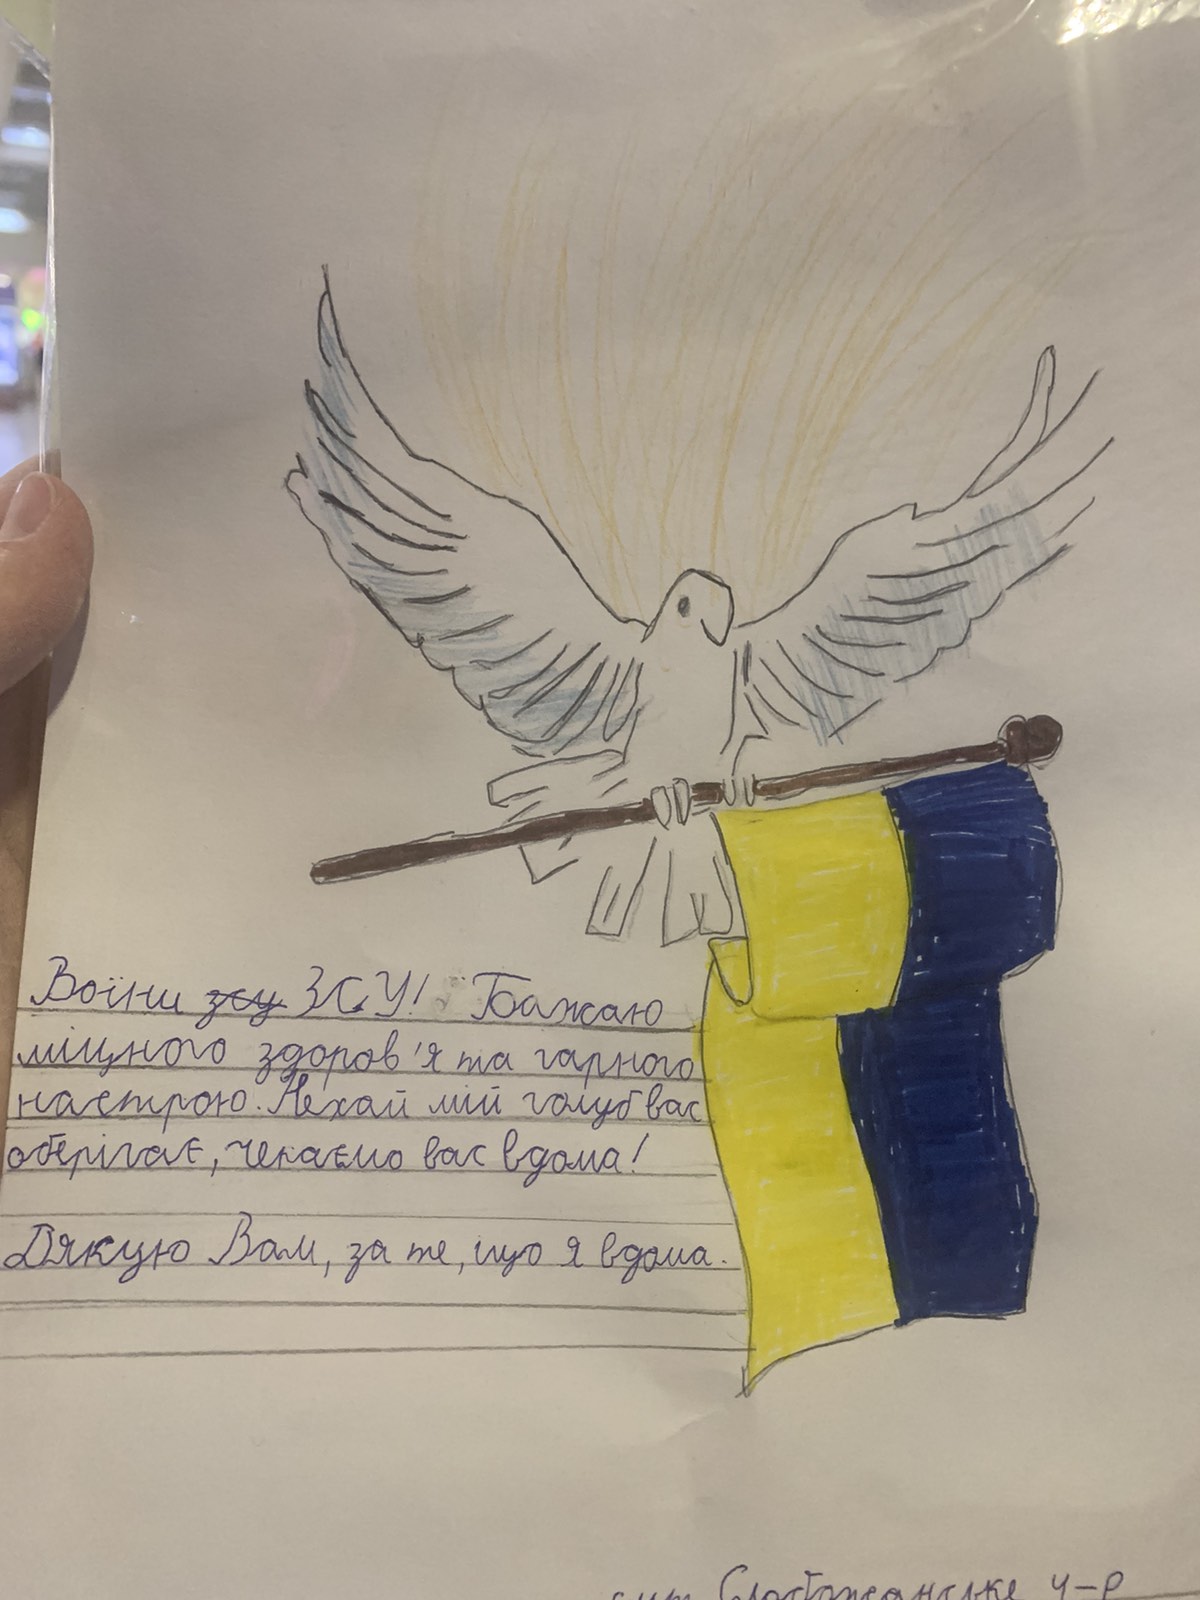 Воїни зсу ЗСУ! Бажаю
міцного здоров'я та гарного
настрою. Нехай мій голуб вас
оберігає, чекаємо вас вдома!
Дякую Вам, за те, що я вдома.
смт Слобожанське ч-р